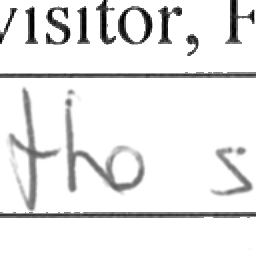 visitor, F
tho s